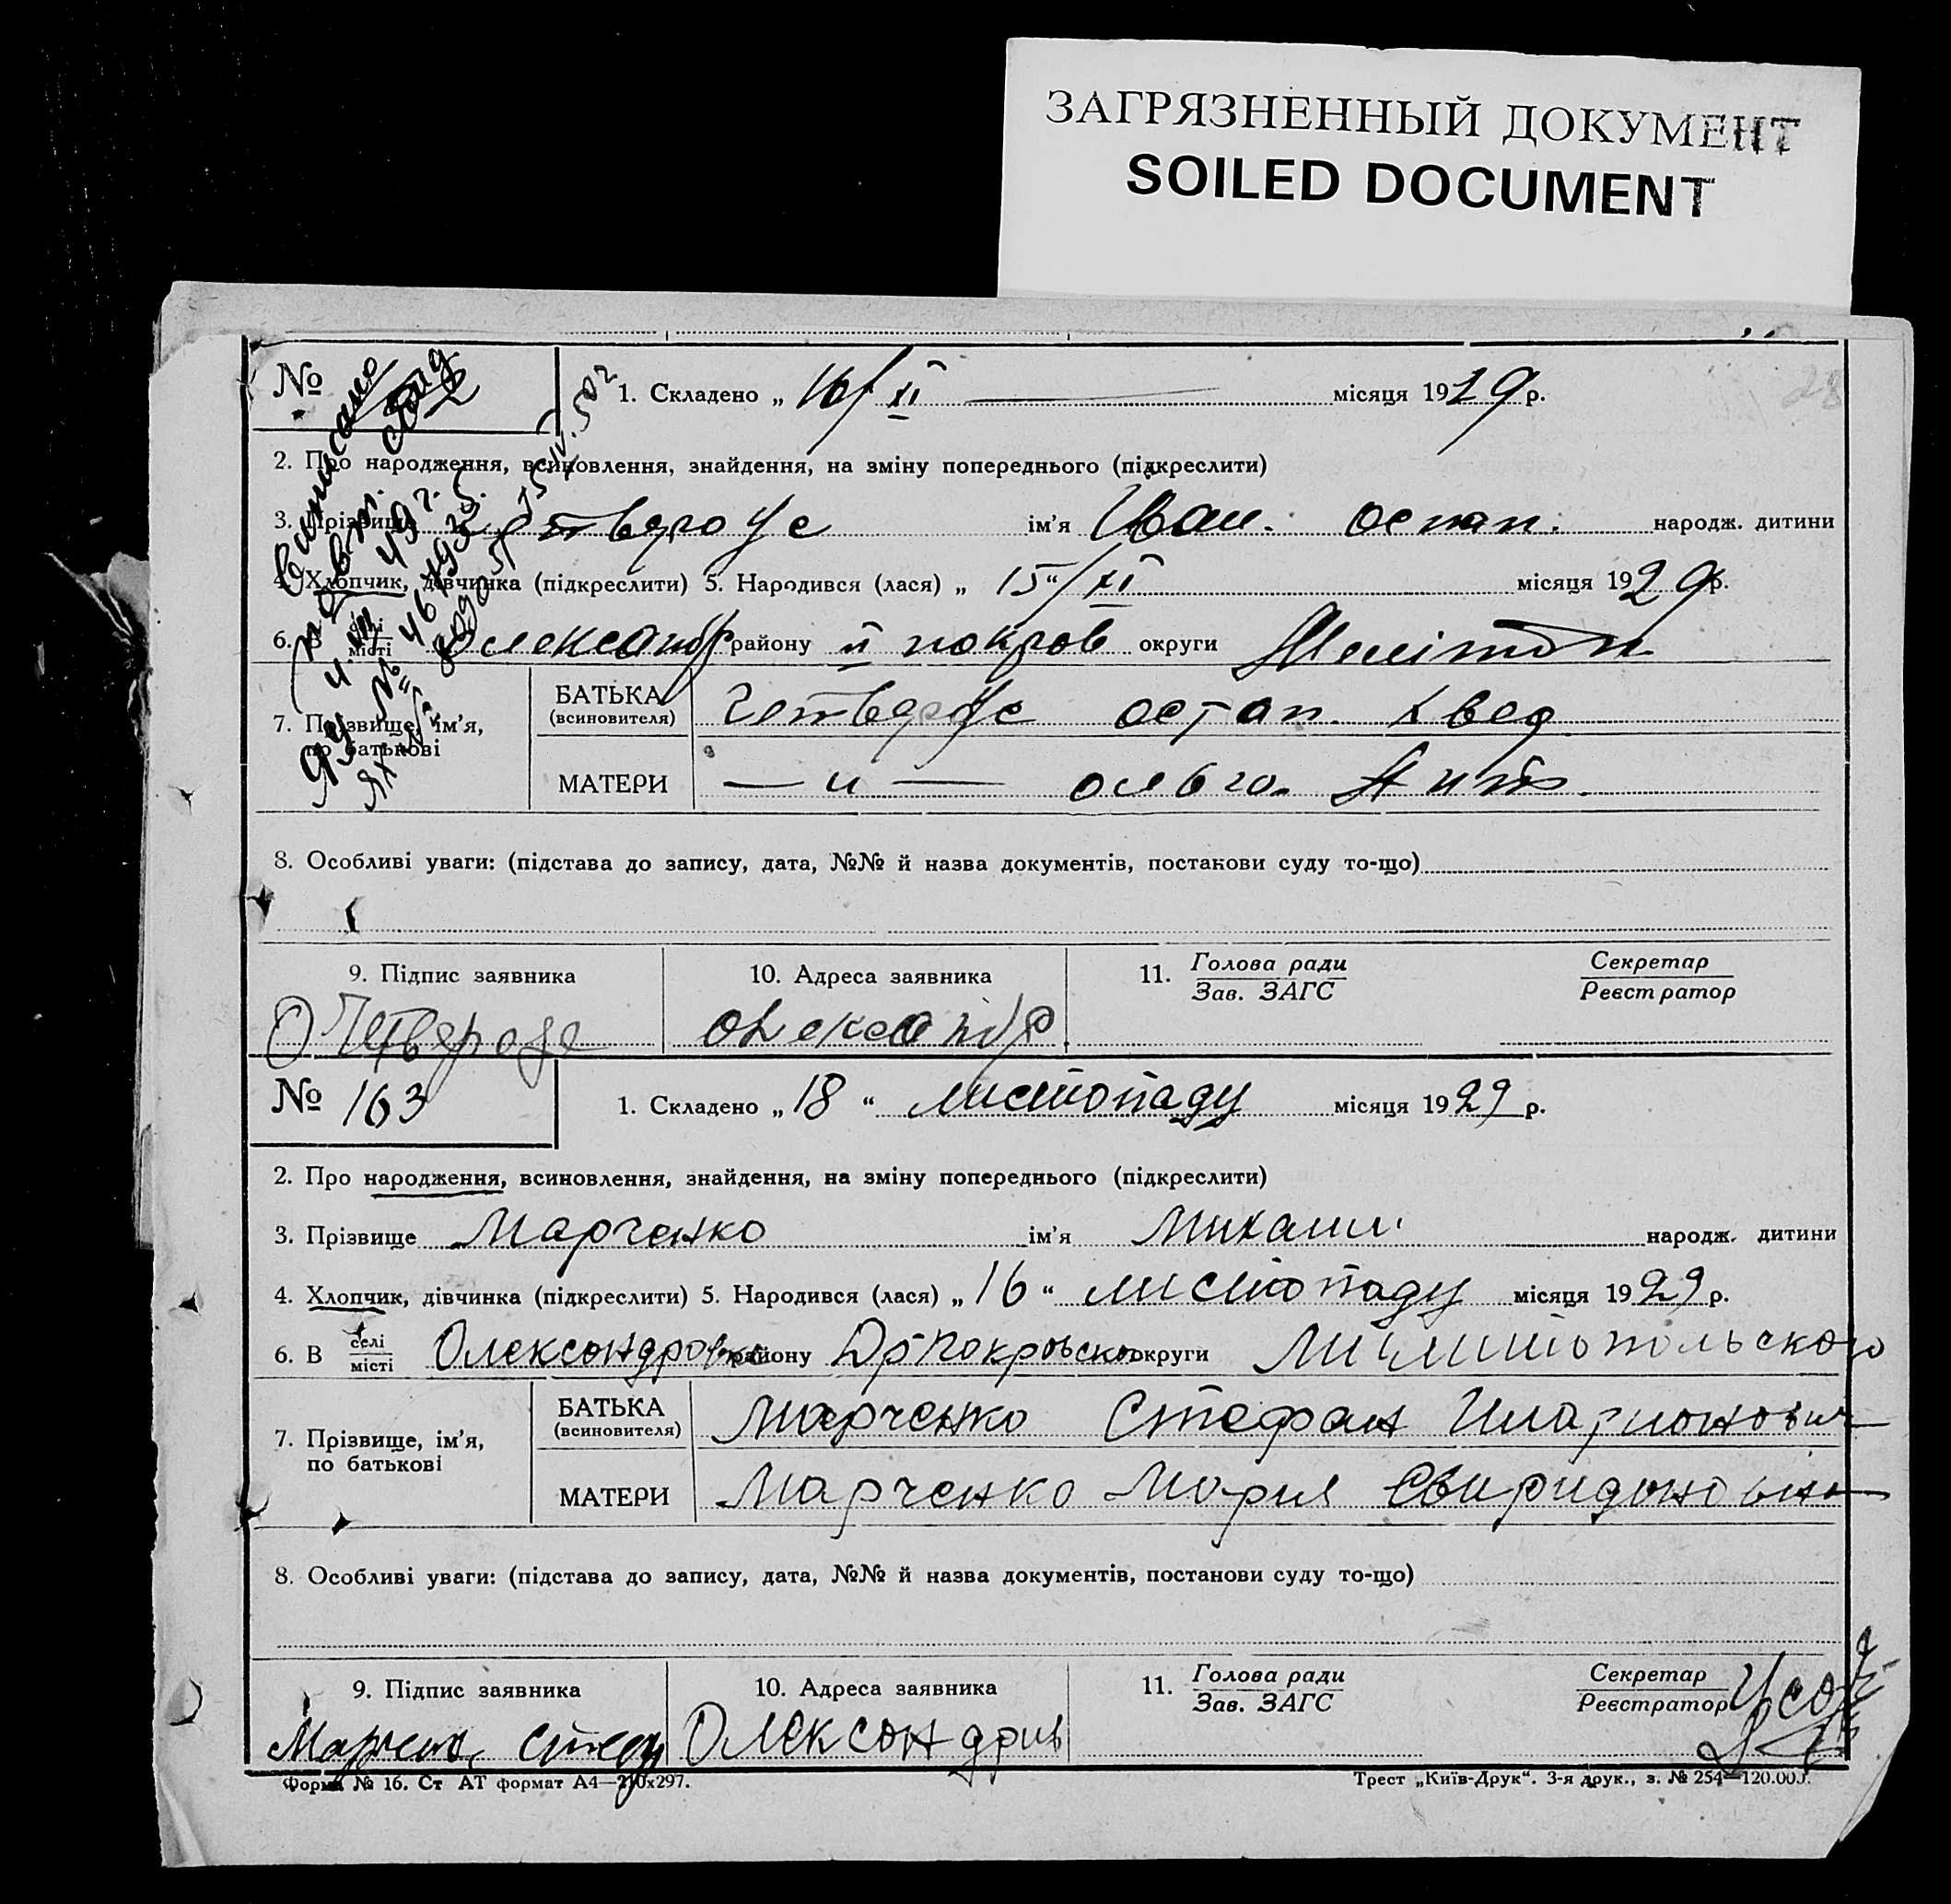 ЗАГРЯЗНЕННЫЙ ДОКУМЕНТ
SOILED DOCUMENT
№
1. Складено „ 16/XI місяця 1929 р.
2. Про народження, всиновлення, знайдення, на зміну попереднього (підкреслити)
3. Прізвище Четвероус ім'я Иван. остап. народж. дитини
4. Хлопчик, дівчинка (підкреслити) 5. Народився (лася) „ 15“/XI місяця 1929 р.
6. В селі місті Олександр району II покров округи Мелітоп
7. Прізвище, ім'я, по батькові
БАТЬКА (всиновителя) Четвероус остап.
МАТЕРИ — и — ольга.
8. Особливі уваги: (підстава до запису, дата, №№ й назва документів, постанови суду то-що)
9. Підпис заявника
10. Адреса заявника
11. Голова ради Зав. ЗАГС
Секретар Реєстратор
О Четвероус Олександр
№ 163
1. Складено „ 18 “ листопаду місяця 1929 р.
2. Про народження, всиновлення, знайдення, на зміну попереднього (підкреслити)
3. Прізвище Марченко ім'я Михаил народж. дитини
4. Хлопчик, дівчинка (підкреслити) 5. Народився (лася) „ 16 “ листопаду місяця 1929 р.
6. В селі місті Олександровка району Др Покровского округи Милитопольского
7. Прізвище, ім'я, по батькові
БАТЬКА (всиновителя) Марченко Стефан Иларионович
МАТЕРИ Марченко Мария Свиридоновна
8. Особливі уваги: (підстава до запису, дата, №№ й назва документів, постанови суду то-що)
9. Підпис заявника
10. Адреса заявника
11. Голова ради Зав. ЗАГС
Секретар Реєстратор
Марченк Стеф Олександрив
Форма № 16. Ст АТ формат А4—210х297.
Трест „Київ-Друк“. 3-я друк., з. № 254—120.000.